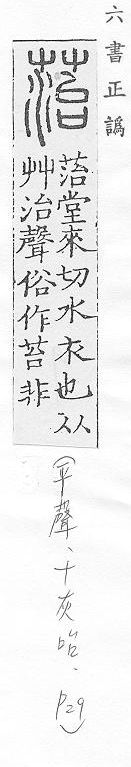 六書正譌
菭
菭堂來切水衣也从
艸治聲俗作苔非
(平聲、十灰咍、P29)